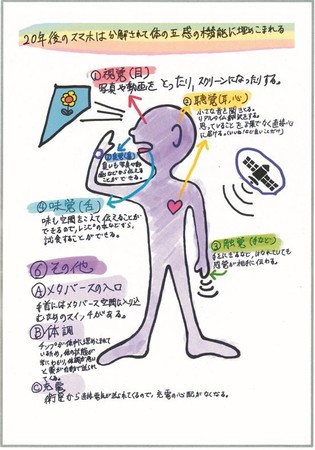 20年後のスマホは分解されて体の五感の機能に埋めこまれる
①視覚(目)
写真や動画をとったり,スクリーンになったりする。
②聴覚(耳,心)
小さな音を聞きとる。
リアルタイム翻訳をする。
思っていることを言葉でなく直接心
に届ける。(いいね!など良いことだけ)
④味覚(舌)
味も空間をこえて伝えることが
できるので,レシピの味などすら,
試食することができる。
③触覚(手など)
手にふれるなど,はなれていても
感覚が相手に伝わる。
⑥その他
Ⓐメタバースの入口
手首にはメタバース空間に入り込
むためのスイッチがある。
Ⓑ体調
チップが体中に埋めこまれて
いるため,体の状態が
常にわかり,体調が悪い
と薬が自動で送られ
てくる。
Ⓒ充電
衛星から直接電気が送られてくるので,充電の心配がなくなる。